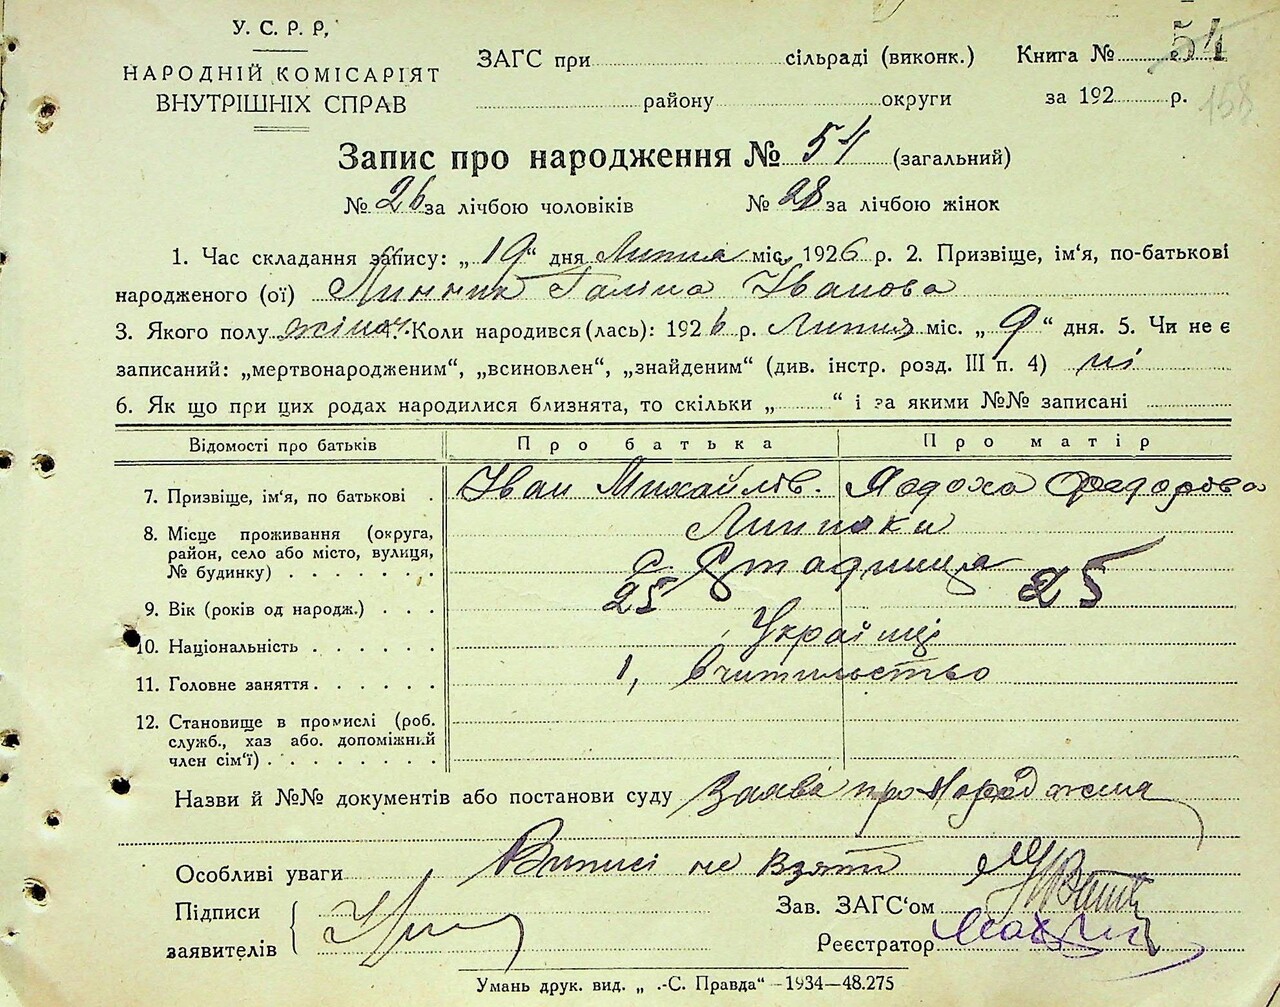 У. С. Р. Р.
НАРОДНІЙ КОМІСАРІЯТ
ВНУТРІШНІХ СПРАВ
ЗАГС при сільраді (виконк.) Книга № 54
району округи за 192 р.
158
Запис про народження № 54 (загальний)
№ 26 за лічбою чоловіків № 28 за лічбою жінок
1. Час складання запису: „ 19 “ дня Липня міс. 1926 р. 2. Призвіще, ім'я, по-батькові
народженого (ої) Линник Галіна Іванова
3. Якого полу жіноч. 4. Коли народився (лась): 1926 р. Липня міс. „ 9 “ дня. 5. Чи не є
записаний: „мертвонародженим“, „всиновлен“, „знайденим“ (див. інстр. розд. III п. 4) ні
6. Як що при цих родах народилися близнята, то скільки „ “ і за якими №№ записані
Відомості про батьків Про батька Про матір
7. Призвіще, ім'я, по батькові . Іван Михайлів. Явдоха Федорова
8. Місце проживання (округа, Линники
район, село або місто, вулиця, с. Стадниця
№ будинку)
9. Вік (років од народж.) 25 25
10. Національність Українці
11. Головне заняття 1, Вчительство
12. Становище в промислі (роб.
служб., хаз або. допоміжний
член сім'ї)
Назви й №№ документів або постанови суду Заява про Народження
Особливі уваги Виписі не взяти
Підписи
заявителів
Зав. ЗАГС'ом
Реєстратор
Умань друк. вид. „ .-С. Правда“ -1934—48.275